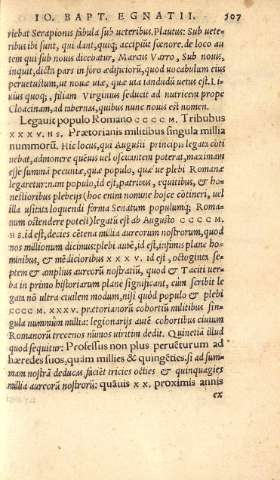 IO. BAPT. EGNATII. 507
riebat Serapionis fabula sub ueteribus. Plautus: Sub uete-
ribus ibi sunt, qui dant, quoq; accipiũt fœnore. de loco au
tem qui sub nouis dicebatur, Marcus Varro, Sub nouis,
inquit, dicta pars in foro ædificiorũ, quod uocabulum eius
peruetustum, ut nouæ uiæ, quæ uia iandudũ uetus est. Li
uius quoq;, filiam Virginius seducit ad nutricem prope
Cloacinam, ad tabernas, quibus nunc nouis est nomen.
Legauit populo Romano CCCC M. Tribubus
XXXV HS. Prætorianis militibus singula millia
nummorũ. Hic locus, qui Augusti principis legata cõti
nebat, admonere quẽuis uel oscitantem poterat, maximam
esse summã pecuniæ, quæ populo, quæ ue plebi Romanæ
legaretur: nam populo, id est, patribus, equitibus, & ho
nestioribus plebeijs (hoc enim nomine hosce cõtineri, uel
illa usitata loquendi forma Senatum populumq; Roma-
num ostendere potest) legata est ab Augusto CCCC M
HS. id est, decies cẽtena millia aureorum nostrorum, quod
nos millionum dicimus: plebi autẽ, id est, infimis plane ho
minibus, & mediocribus XXXV. id est, octoginta se-
ptem & amplius aureorũ nostratiũ, quod & Taciti uer-
ba in primo historiarum plane significant, cùm scribit le
gata nõ ultra ciuilem modum, nisi quòd populo & plebi
CCCC M. XXXV. prætorianorũ cohortũ militibus sin-
gula nummûm millia: legionarijs autẽ cohortibus ciuium
Romanorũ trecenos númos uiritim dedit. Quinetiã illud
quod sequitur: Professus non plus peruẽturum ad
hæredes suos, quàm millies & quingẽties. si ad sum-
mam nostrã deducas, faciẽt tricies octies & quinquagies
millia aureorũ nostrorũ: quãuis XX. proximis annis
ex